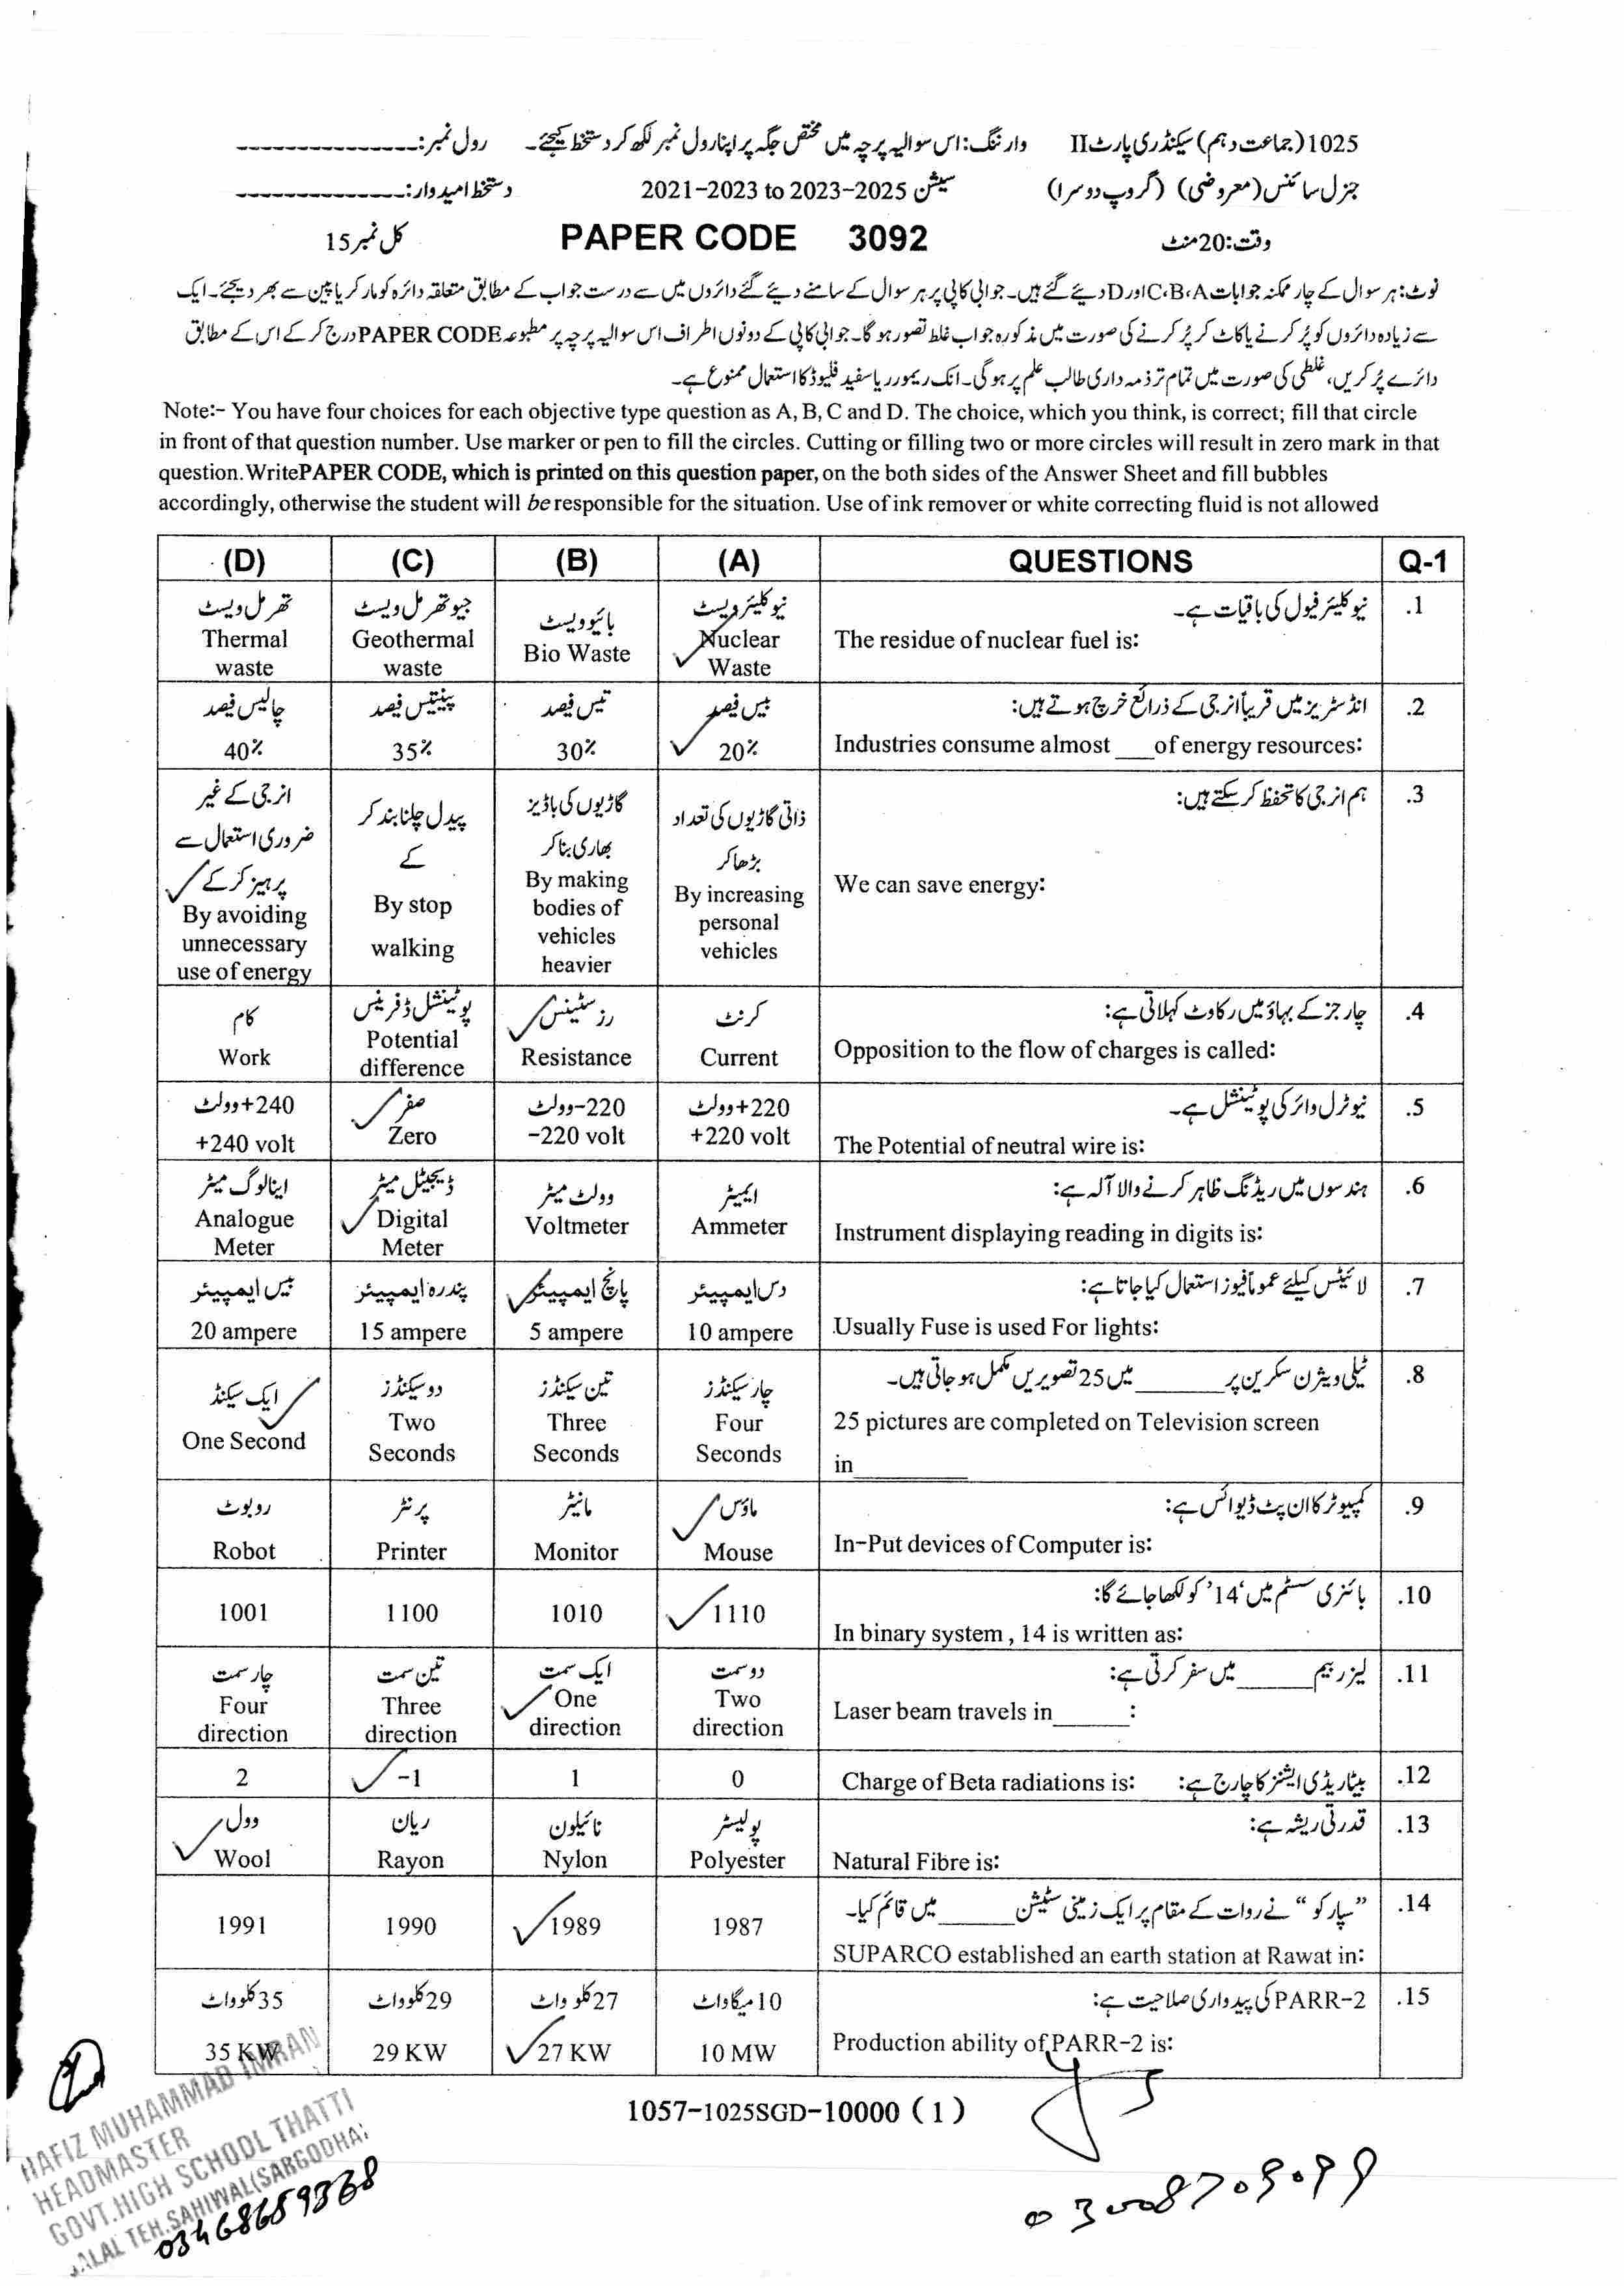 1025 (جماعت دہم) سیکنڈری پارٹ II وارننگ: اس سوالیہ پرچہ میں مختص جگہ پر اپنا رول نمبر لکھ کر دستخط کیجئے۔ رول نمبر: ---------------
جنرل سائنس (معروضی) (گروپ دوسرا) سیشن 2021-2023 to 2023-2025 دستخط امیدوار: ---------------
وقت: 20 منٹ PAPER CODE 3092 کل نمبر 15
نوٹ: ہر سوال کے چار ممکنہ جوابات A، B، C اور D دیئے گئے ہیں۔ جوابی کاپی پر ہر سوال کے سامنے دیئے گئے دائروں میں سے درست جواب کے مطابق متعلقہ دائرہ کو مارکر یا پین سے بھر دیجئے۔ ایک
سے زیادہ دائروں کو پُر کرنے یا کاٹ کر پُر کرنے کی صورت میں مذکورہ جواب غلط تصور ہوگا۔ جوابی کاپی کے دونوں اطراف اس سوالیہ پرچہ پر مطبوعہ PAPER CODE درج کر کے اس کے مطابق
دائرے پُر کریں، غلطی کی صورت میں تمام تر ذمہ داری طالب علم پر ہوگی۔ انک ریموور یا سفید فلیوڈ کا استعمال ممنوع ہے۔
Note:- You have four choices for each objective type question as A, B, C and D. The choice, which you think, is correct; fill that circle
in front of that question number. Use marker or pen to fill the circles. Cutting or filling two or more circles will result in zero mark in that
question. WritePAPER CODE, which is printed on this question paper, on the both sides of the Answer Sheet and fill bubbles
accordingly, otherwise the student will be responsible for the situation. Use of ink remover or white correcting fluid is not allowed
(D) (C) (B) (A) QUESTIONS Q-1
تھرمل ویسٹ جیوتھرمل ویسٹ بائیو ویسٹ نیوکلیئر ویسٹ نیوکلیئر فیول کی باقیات ہے۔ .1
Thermal waste Geothermal waste Bio Waste Nuclear Waste The residue of nuclear fuel is:
چالیس فیصد پینتیس فیصد تیس فیصد بیس فیصد انڈسٹریز میں قریباً انرجی کے ذرائع خرچ ہوتے ہیں: .2
40% 35% 30% 20% Industries consume almost ___of energy resources:
انرجی کے غیر ضروری استعمال سے پرہیز کر کے پیدل چلنا بند کر کے گاڑیوں کی باڈیز بھاری بنا کر ذاتی گاڑیوں کی تعداد بڑھا کر ہم انرجی کا تحفظ کر سکتے ہیں: .3
By avoiding unnecessary use of energy By stop walking By making bodies of vehicles heavier By increasing personal vehicles We can save energy:
کام پوٹینشل ڈفرینس رزسٹینس کرنٹ چارجز کے بہاؤ میں رکاوٹ کہلاتی ہے: .4
Work Potential difference Resistance Current Opposition to the flow of charges is called:
+240 وولٹ صفر -220 وولٹ +220 وولٹ نیوٹرل وائر کی پوٹینشل ہے۔ .5
+240 volt Zero -220 volt +220 volt The Potential of neutral wire is:
اینالوگ میٹر ڈیجیٹل میٹر وولٹ میٹر ایمیٹر ہندسوں میں ریڈنگ ظاہر کرنے والا آلہ ہے: .6
Analogue Meter Digital Meter Voltmeter Ammeter Instrument displaying reading in digits is:
بیس ایمپیئر پندرہ ایمپیئر پانچ ایمپیئر دس ایمپیئر لائیٹس کیلئے عموماً فیوز استعمال کیا جاتا ہے: .7
20 ampere 15 ampere 5 ampere 10 ampere Usually Fuse is used For lights:
ایک سیکنڈ دو سیکنڈز تین سیکنڈز چار سیکنڈز ٹیلی ویژن سکرین پر ______ میں 25 تصویریں مکمل ہو جاتی ہیں۔ .8
One Second Two Seconds Three Seconds Four Seconds 25 pictures are completed on Television screen
in________
روبوٹ پرنٹر مانیٹر ماؤس کمپیوٹر کا ان پٹ ڈیوائس ہے: .9
Robot Printer Monitor Mouse In-Put devices of Computer is:
بائنری سسٹم میں '14' کو لکھا جائے گا: .10
1001 1100 1010 1110 In binary system , 14 is written as:
چار سمت تین سمت ایک سمت دو سمت لیزر بیم ______ میں سفر کرتی ہے: .11
Four direction Three direction One direction Two direction Laser beam travels in______:
2 -1 1 0 Charge of Beta radiations is: بیٹا ریڈی ایشنز کا چارج ہے: .12
وول ریان نائیلون پولیسٹر قدرتی ریشہ ہے: .13
Wool Rayon Nylon Polyester Natural Fibre is:
”سپارکو“ نے روات کے مقام پر ایک زمینی سٹیشن ______ میں قائم کیا۔ .14
1991 1990 1989 1987 SUPARCO established an earth station at Rawat in:
35 کلو واٹ 29 کلو واٹ 27 کلو واٹ 10 میگا واٹ PARR-2 کی پیداواری صلاحیت ہے: .15
35 KW 29 KW 27 KW 10 MW Production ability of PARR-2 is:
1057-1025SGD-10000 ( 1 )
HAFIZ MUHAMMAD IMRAN
HEADMASTER
GOVT. HIGH SCHOOL THATTI
JALAL TEH. SAHIWAL (SARGODHA)
03468659368
03008709099